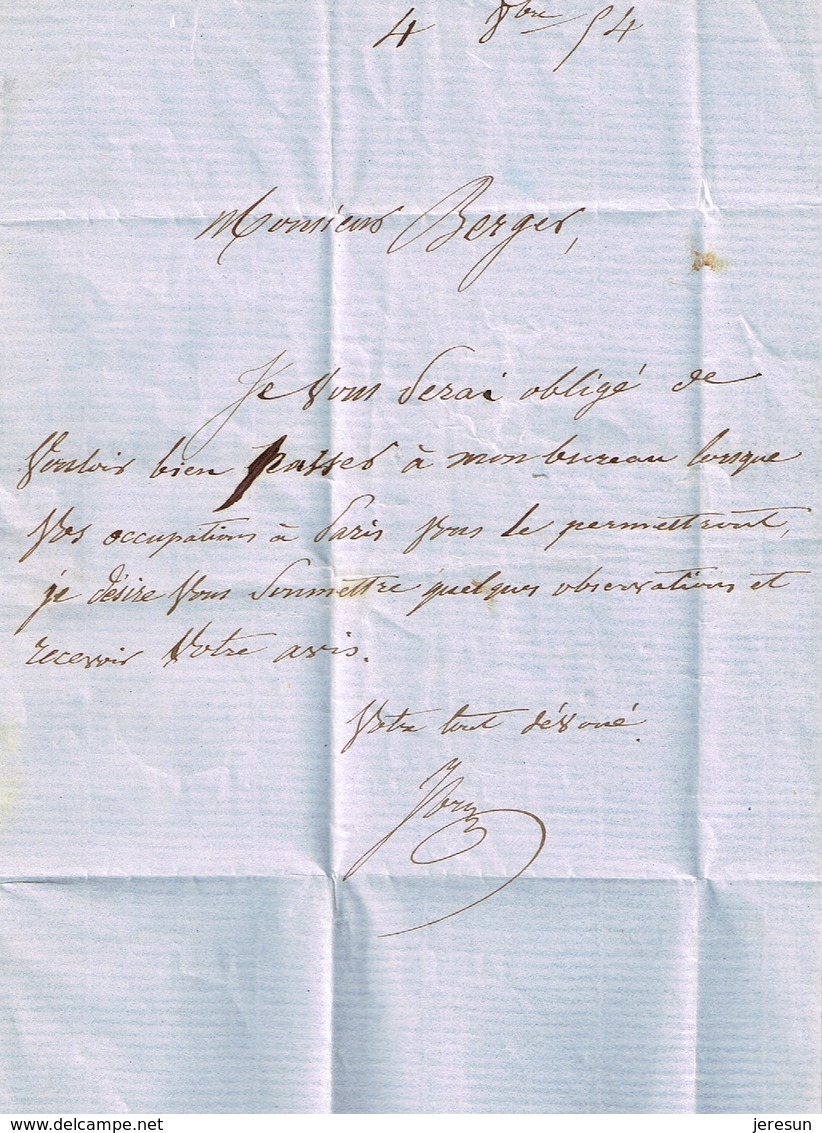 4 8bre 54
Monsieur Berger,
Je vous serai obligé de
vouloir bien passer à mon bureau lorsque
vos occupations à Paris vous le permettront,
je désire vous soumettre quelques observations et
recevoir votre avis.
Votre tout dévoué.
delcampe.net
jeresun